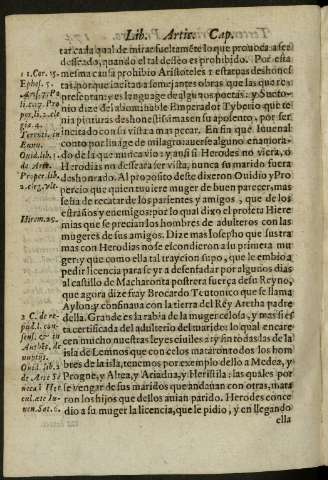 Lib. Artic. Cap.
tar cada qual de mirar sueltaméte lo que prouoca a ser
desseado, quando el tal desseo es prohibido. Por esta
mesma causa prohibio Aristoteles
tas, por que incitan a semejantes obras que las que re-
presentan: y es lenguage de algunos poetas: y Sueto-
nio dize del abominable Emperador Tyberio que te
nia pinturas deshonestissimas en su aposento, por ser
incitado con su vista a mas pecar. En fin que Iuuenal
conto por linage de milagro auerse alguno enamora-
do de la que nunca vio: y ansi si Herodes no viera, o
Herodias no desseara ser vista, nunca su marido fuera
deshonrado. Al proposito deste dixeron Ouidio y Pro
percio que quien tuuiere muger de buen parecer, mas
se fia de recatar de los parientes y amigos, que de los
estraños y enemigos: por lo qual dixo el profeta Hiere
mias que se precian los hombres de adulteros con las
mugeres de sus amigos. Dize mas Iosepho que sus tra
mas con Herodias no se escondieron a su primera mu
ger: y que como ella tal trayció supo, que le embio a
pedir licencia para se yr a desenfadar por algunos dias
al castillo de Macharonta postrera fuerça de su Reyno,
que agora dize fray Brocardo Teutonico que se llama
Aylon, y confinaua con la tierra del Rey Aretha padre
della. Grande es la rabia de la muger celosa, y mas si es
ta certificada del adulterio del marido: lo qual encare
cen mucho nuestras leyes ciuiles: y sin todas las de la
isla de Lemnos que con celos mataron todos los hom
bres de la isla, tenemos por exemplo dello a Medea, y
Progne, y Altea, y Ariadna, y Herisila: las quales por
se vengar de sus maridos que andauan con otras, mata
ron los hijos que dellos auian parido. Herodes conce
dio a su muger la licencia, que le pidio, y en llegando
ella
1 1. Cor. 15.
Ephes. 5.
gia. 4.
Ouid. lib. 1
de Arte.
Proper. lib.
Hierem. 25.
2 C. de re-
pud. l. con
sensu. & in
nuptijs.
Ouid. lib. 2
de Arte
Iuuen. Sat. 6.